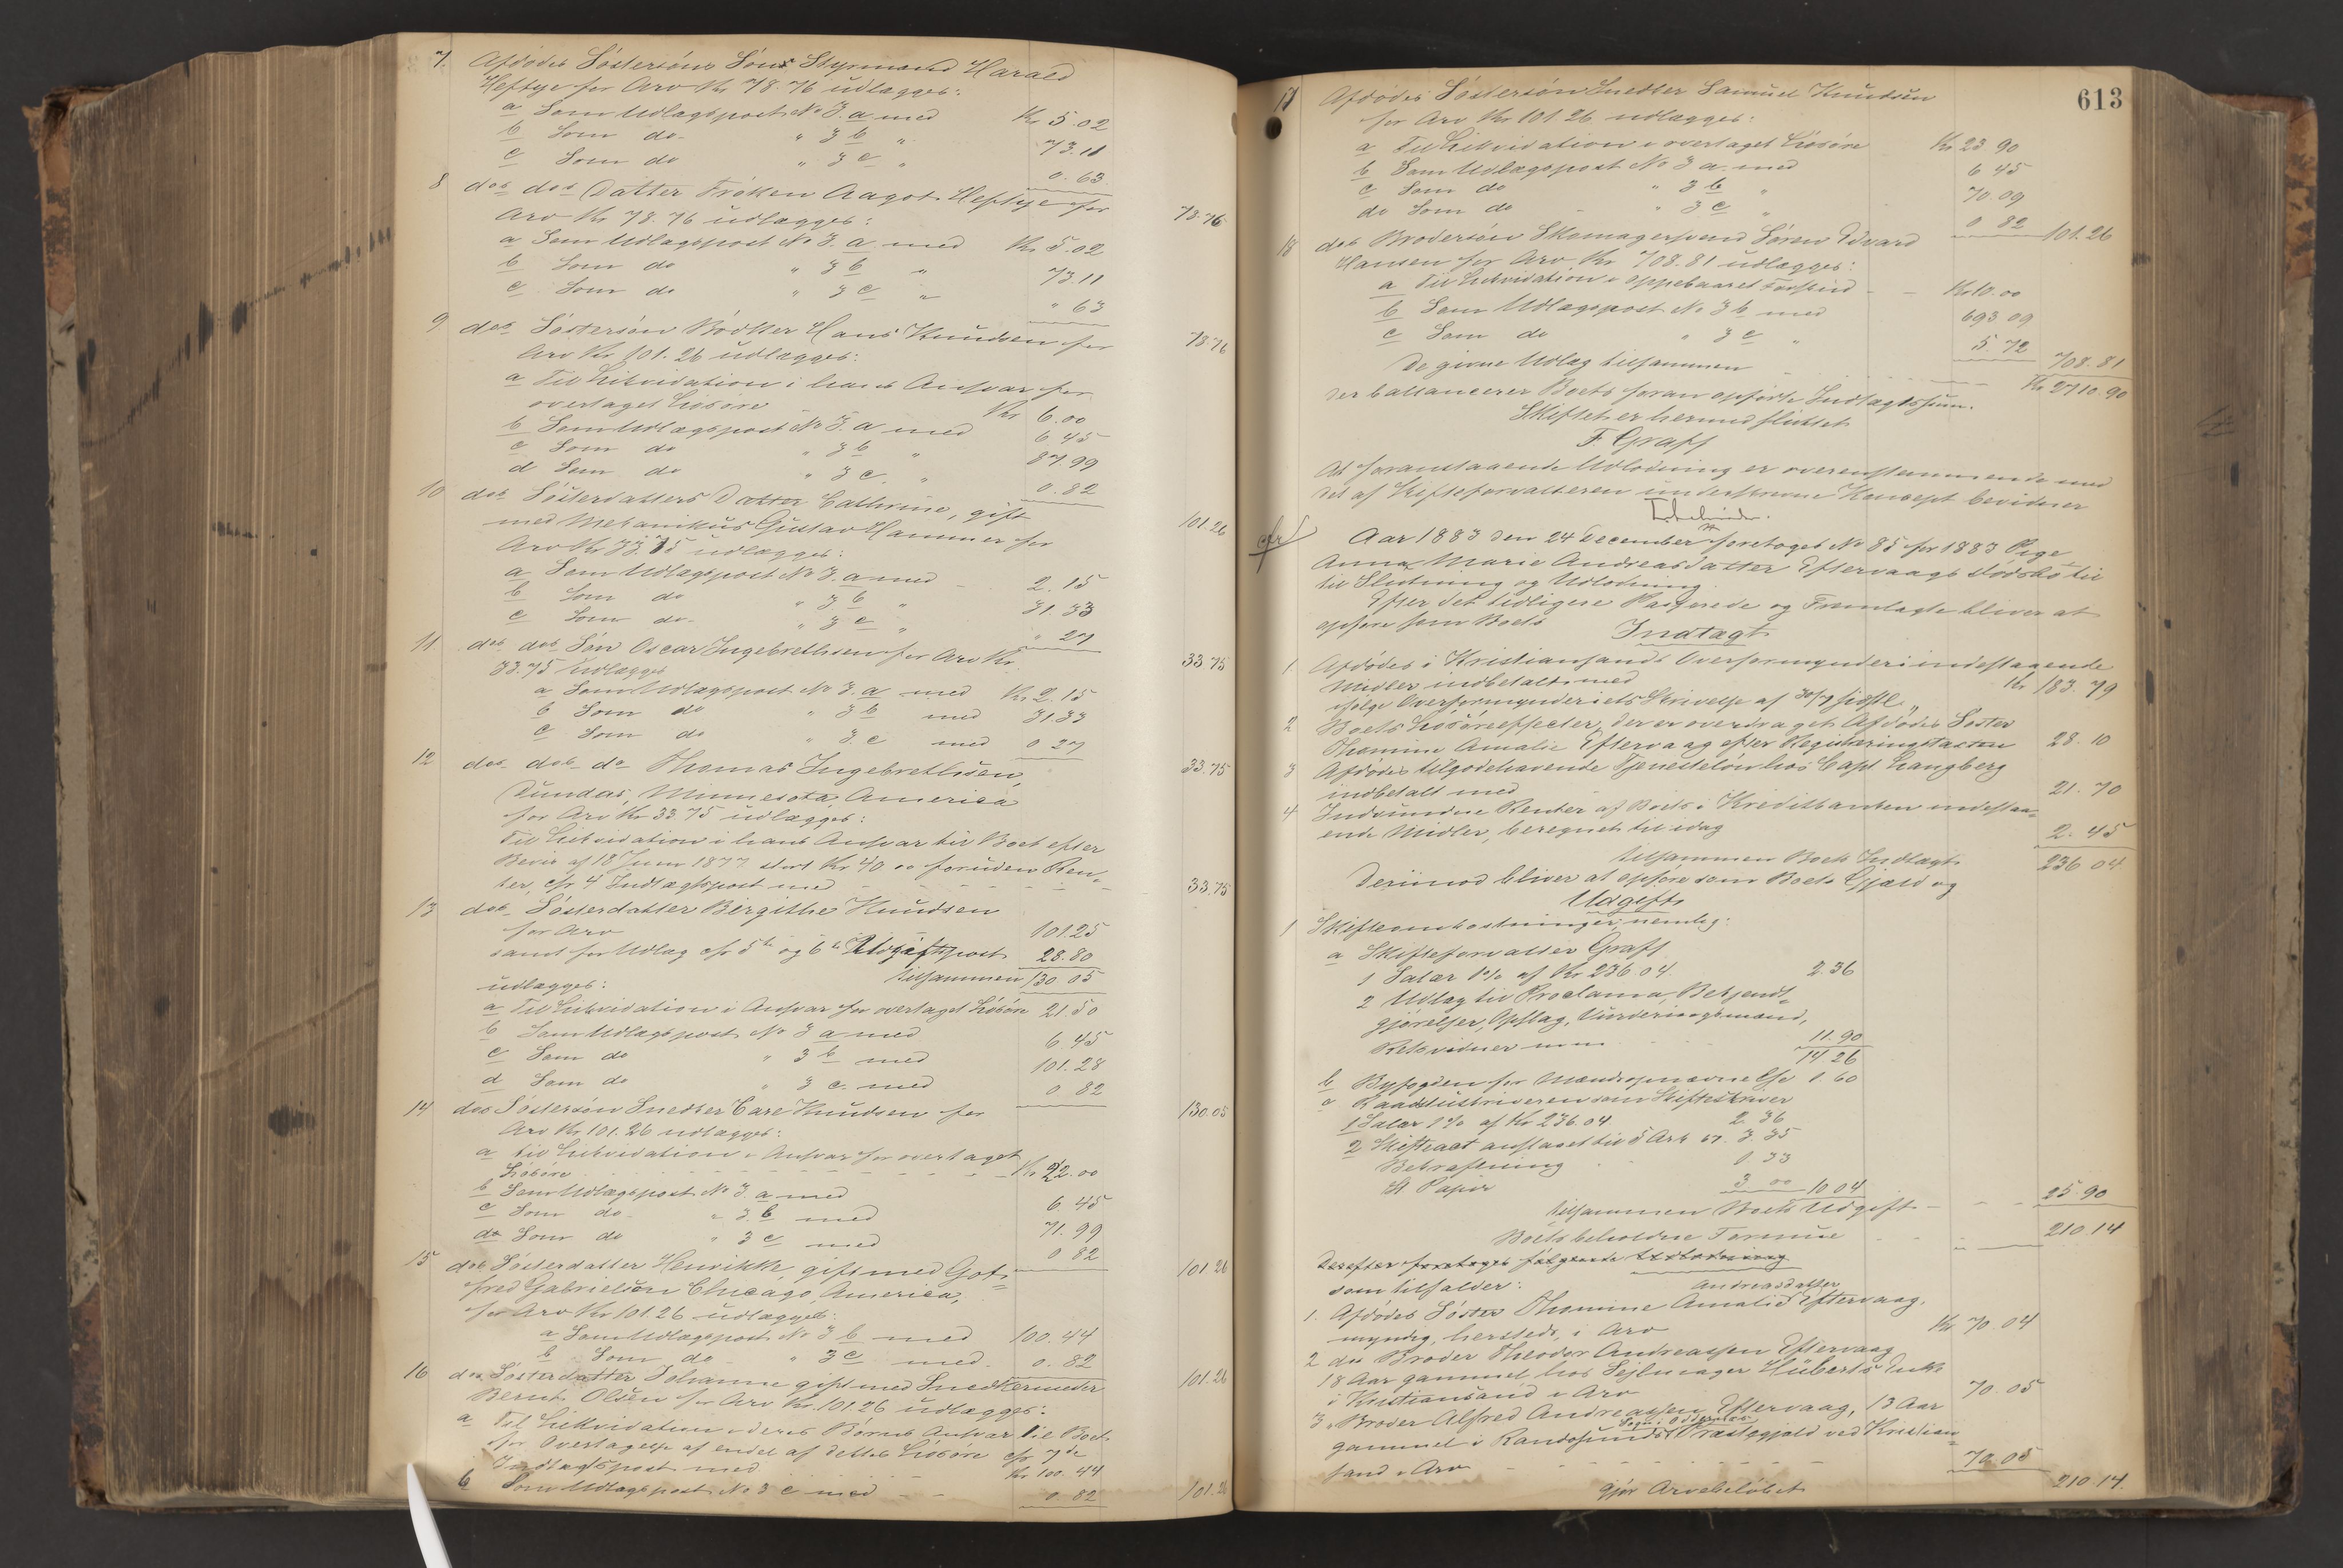 7. Afdødes Søstersøns Søn Styrmand Harald
Heftye for Arv Kr 78.76 udlægges:
a Som Udlagspost No 3. a med Kr 5.02
b Som do " 3 b " 73.11
c Som do " 3 c " 0.63
78.76
8 des des Datter Frøken Aagot Heftye for
Arv Kr 78.76 udlægges:
a Som Udlagspost No 3. a med Kr 5.02
b Som do " 3 b " 73.11
c Som do " 3 c " " 63
78.76
9 des Søstersøn Bødker Hans Knudsen for
Arv Kr 101.26 udlægges:
a Til Likvidation i hans Ansvar for
overtaget Løsøre Kr 6.00
b Som Udlagspost No 3. a med 6.45
c Som do " 3 b " 87.99
d Som do " 3 c " 0.82
101.26
10 des Søsterdatters Datter Cathrine, gift
med Mekanikus Gustav Hammer for
Arv Kr 33.75 udlægges:
a Som Udlagspost No 3. a med 2.15
b Som do " 3 b " 31.33
c Som do " 3 c " " 27
33.75
11 des des Søn Oscar Ingebrethsen for Arv Kr
33.75 udlægges
a Som Udlagspost No 3. a med Kr 2.15
b Som do " 3 b med 31.33
c Som do " 3. c med 0 27
33.75
12 des des do Thomas Ingebrethsen,
Dundas, Minnesota, America
for Arv Kr 33 75 udlægges:
Til Likvidation i hans Ansvar til Boet efter
Bevis af 18 Juni 1877 stort Kr 40 00 foruden Ren-
ter, cfr 4 Indtægtspost med 33.75
13 des Søsterdatter Birgithe Knudsen
for Arv 101.25
samt for Udlæg cfr 5te og 6te Udgiftspost 28.80
tilsammen 130 05
udlægges:
a Til Likvidation i Ansvar for overtaget Løsøre 21.50
b Som Udlagspost No 3 a med 6.45
c Som do " 3 b med 101.28
d Som do " 3 c. med 0 82
130.05
14 des Søstersøn Snedker Carl Knudsen for
Arv Kr 101.26 udlægges:
a til Likvidation i Ansvar for overtaget
Løsøre Kr 22.00
b Som Udlagspost No 3. a med 6.45
c Som do " 3. b med 71.99
do Som do " 3 c med 0 82
101 26
15 des Søsterdatter Henrikke, gift med Got-
fred Gabrielsen Chicago, America,
for Arv Kr 101.26 udlægges:
a Som Udlagspost No 3 b med 100.44
b Som do " 3 c med 0.82
101.26
16 des Søsterdatter Johanne gift med Snedkermester
Bernt Olsen for Arv Kr. 101.26 udlægges:
a Til Likvidation i deres Børns Ansvar til Boet
for Overtagelse af endel af dettes Løsøre cfr 7de
Indtægtspost med Kr 100.44
b Som Udlagspost No 3 c med 0.82
101.26
613
17 Afdødes Søstersøn Snedker Samuel Knudsen
for Arv Kr 101.26 udlægges:
a Til Likvidation i overtaget Løsøre Kr 23 90
b Som Udlagspost No 3 a med 6 45
c Som do " 3 b " 70.09
do Som do " 3 c " 0 82
101.26
18 des Brodersøn Skomagersvend Søren Edvard
Hansen for Arv Kr 708.81 udlægges:
a Til Likvidation i oppebaaret Forskud Kr 10.00
b Som Udlagspost No 3 b med 693 09
c Som do " 3 c " 5 72
708.81
De givne Udlæg tilsammen Kr 2710.90
der ballancerer Boets foran opførte Indtægtssum.
Skiftet er hermed sluttet
F. Graff
At foranstaaende Udlodning er overensstemmende med
det af Skifteforvalteren underskrevne Koncept bevidner
cfr Aar 1883 den 24 December foretoges No 85 for 1883 Pige
Anna Marie Andreasdatter Eftervaags Dødsbo til
til Slutning og Udlodning.
Efter det tidligere Passerede og Fremlagte bliver at
opføre som Boets
Indtægt
1 Afdødes i Kristiansands Overformynderi indestaaende
Midler indbetalt med Kr 183.79
ifølge Overformynderiets Skrivelse af 30/7 sidstl.
2 Boets Løsøreeffecter, der er overdraget Afdødes Søster
Thomine Amalie Eftervaag efter Registreringstaxten 28.10
3 Afdødes tilgodehavende Tjenesteløn hos Capt Langberg
indbetalt med 21.70
4 Indvundne Renter af Boets i Kreditbanken indestaa-
ende Midler, beregnet til idag 2.45
tilsammen Boets Indtægt 236 04
Derimod bliver at opføre som Boets Gjæld og
Udgift
1 Skifteomkostninger, nemlig:
a Skifteforvalter Graff
1 Salær 1% af Kr 236.04 2.36
2 Udlæg til Proclama, Bekjendt-
gjørelser, Opslag, Vurderingsmænd,
Retsvidner m m 11.90
14 26
b Byfogden for Mændsopnævnelse 1.60
c Raadstuskriveren som Skifteskriver
1 Salær 1% af Kr 236.04 2 36
2 Skifteact anslaaet til 5 Ark 67. 3.35
Bekræftning 1 33
St Papir 3 00 10 04
25.90
tilsammen Boets Udgift
Boets beholdne Formue 210.14
Derefter foretages følgende Udlodning
som tilfalder:
1. Afdødes Søster Thomine Amalie Andreasdatter Eftervaag,
myndig, hersteds, i Arv Kr 70.04
2 des Broder Theodor Andreassen Eftervaag
18 Aar gammel hos Sejlmager Hüberts Enke
i Kristiansand i Arv 70.05
3 " Broder Alfred Andreassen Eftervaag, 13 Aar
gammel i Randøsunds Sogn i Oddernæs Præstegjæld ved Kristian-
sand i Arv 70.05
gjør Arvebeløbet 210.14.